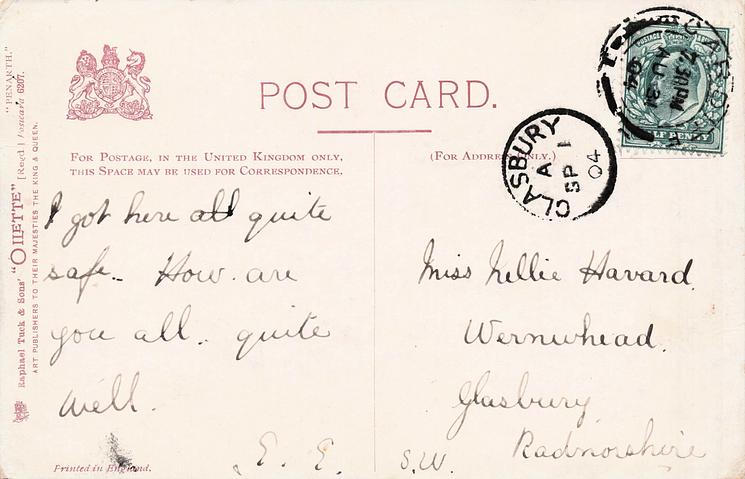 POST CARD.
FOR POSTAGE, IN THE UNITED KINGDOM ONLY,
THIS SPACE MAY BE USED FOR CORRESPONDENCE.
(FOR ADDRESS ONLY.)
I got here all quite
safe. How are
you all. quite
well.
E. E.
Miss Nellie Havard.
Wernwhead.
Glasbury
Radnorshire
S.W.
CARDIFF
7.30PM
AU 31
04
POSTAGE
HALF PENNY
GLASBURY
A
SP 1
04
"PENARTH."
Raphael Tuck & Sons' "OILETTE" [Regd.] Postcard 6207.
ART PUBLISHERS TO THEIR MAJESTIES THE KING & QUEEN.
Printed in England.